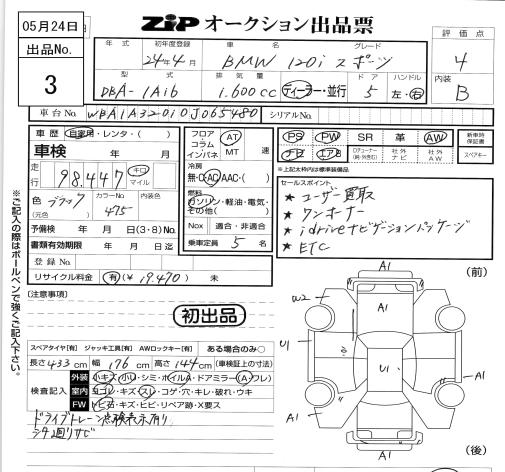 05月24日
出品No.
3
ZIP オークション出品票
年式 初年度登録 車名 グレード
24年4月 BMW 120i スポーツ
型式 排気量 ドア ハンドル
DBA-1A16 1.600cc ディーラー・並行 5 左・右
評価点
4
内装
B
車台No. WBA1A32010J065480 シリアルNo.
車歴 自家用・レンタ・( )
車検 年 月
走行 98.447 キロ マイル
色 ブラック カラーNo. 475 内装色
(元色)
予備検 年 月 日(3・8)Mo.
書類有効期限 年 月 日迄
登録No.
リサイクル料金 有(¥19.470) 未
フロア
コラム
インパネ
AT
MT
速
冷房
無・C・AC・AAC・( )
燃料
ガソリン・軽油・電気・
その他( )
Nox 適合・非適合
乗車定員 5 名
PS PW SR 革 AW
ナビ エアB Dチューナー(純・外含む) 社外ナビ 社外AW
新車時保証書
スペアキー
※上記太枠内は標準装備品
セールスポイント
★ ユーザー買取
★ ワンオーナー
★ idriveナビゲーションパッケージ
★ ETC
※ご記入の際はボールペンで強くご記入下さい。
[注意事項]
初出品
スペアタイヤ[有] ジャッキ工具[有] AWロックキー[有] ある場合のみ○
長さ433cm 幅176cm 高さ144cm (車検証上の寸法)
検査記入
外装 小キズ・小U・シミ・ホイルA・ドアミラー(A・ワレ)
室内 ヨゴレ・キズ・スレ・コゲ・穴・キレ・破れ・ウキ
FW トビ石・キズ・ヒビ・リペア跡・X要ス
ドライブトレーン点検表示有り
シタ廻りサビ
(前)
A1
W2
A1
U1
U1
A1
A1
A1
A1
(後)